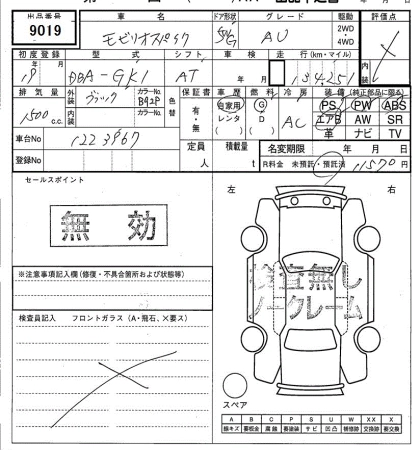 出品番号 車名 ドア形状 グレード 駆動 評価点
9019 モビリオスパイク 5D/G AU 2WD 4WD
初度登録 型式 シフト 車検 走行(km・マイル)
19年 月 DBA-GK1 AT 年 月
排気量 外装 カラーNo. 色替 保証書 車歴 燃料 冷房 装備(純正部品に限る)
1500 c.c. B92P 有・無 自家用 G AC PS PW ABS
内装 カラーNo. レンタ D エアB AW SR
( ) ( ) 革 ナビ TV
車台No 1223967 定員 積載量 名変期限 年 月 日
登録No 人 t R料金 未預託・預託済 11570円
セールスポイント 左 右
無効
検査無し
ノークレーム
※注意事項記入欄(修復・不具合箇所および状態等)
検査員記入 フロントガラス(A・飛石、×要ス)
スペア
A B C P S U W X XX
線キズ 要板金 腐蝕 要塗装 サビ 凹凸 補修跡 交換跡 要交換